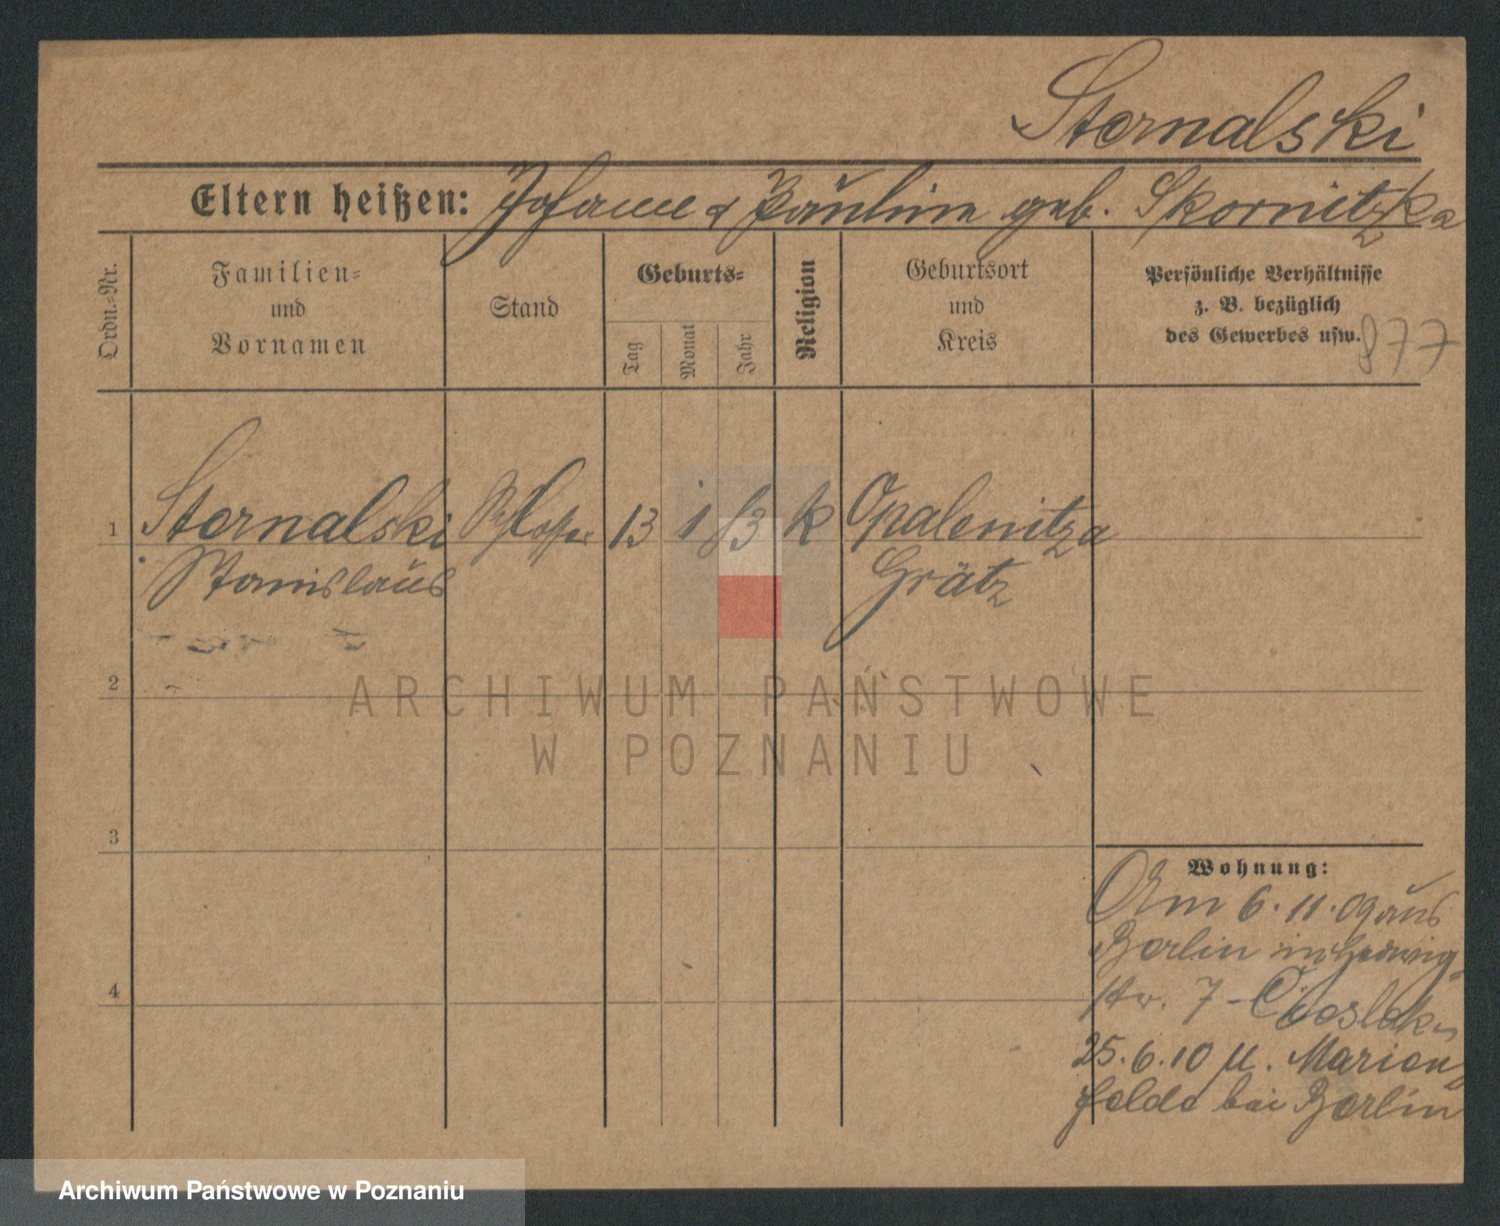 Sternalski
Eltern heißen: Johann & Pauline geb. Skornitzka
Ordn.-Nr.
Familien-
und
Vornamen
Stand
Geburts-
Tag
Monat
Jahr
Religion
Geburtsort
und
Kreis
Persönliche Verhältnisse
z. B. bezüglich
des Gewerbes usw.
877
1 Sternalski Schlosser 13 1 83 k Opalenitza
Stanislaus Grätz
2
ARCHIWUM PAŃSTWOWE
W POZNANIU
3
Wohnung:
Am 6.11.09 aus
Berlin in Hedwig-
str. 7 -
4
25.6.10 u. Marien-
felde bei Berlin
Archiwum Państwowe w Poznaniu